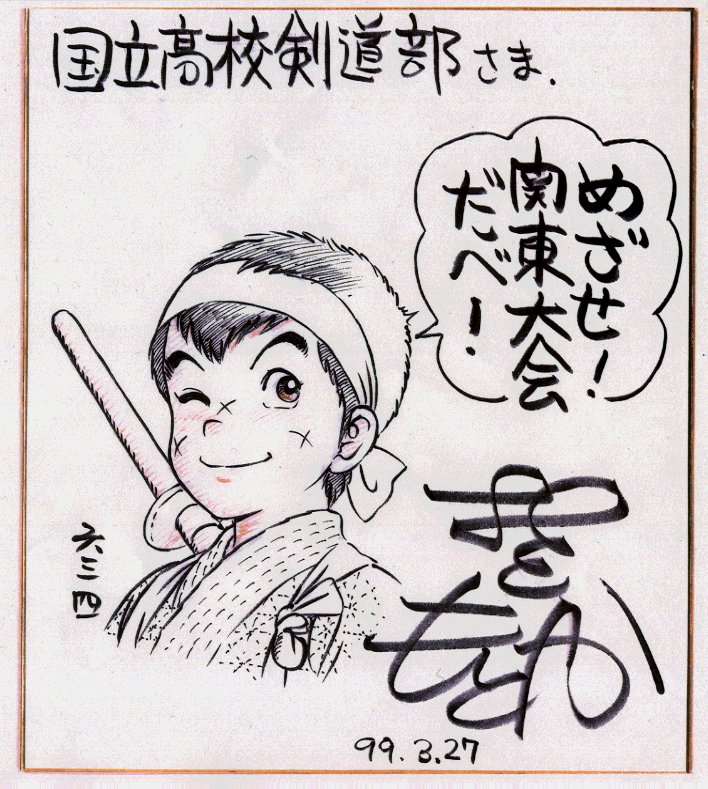 国立高校剣道部さま.
めざせ!
関東大会
だべ!
六三四
もとか
99.3.27